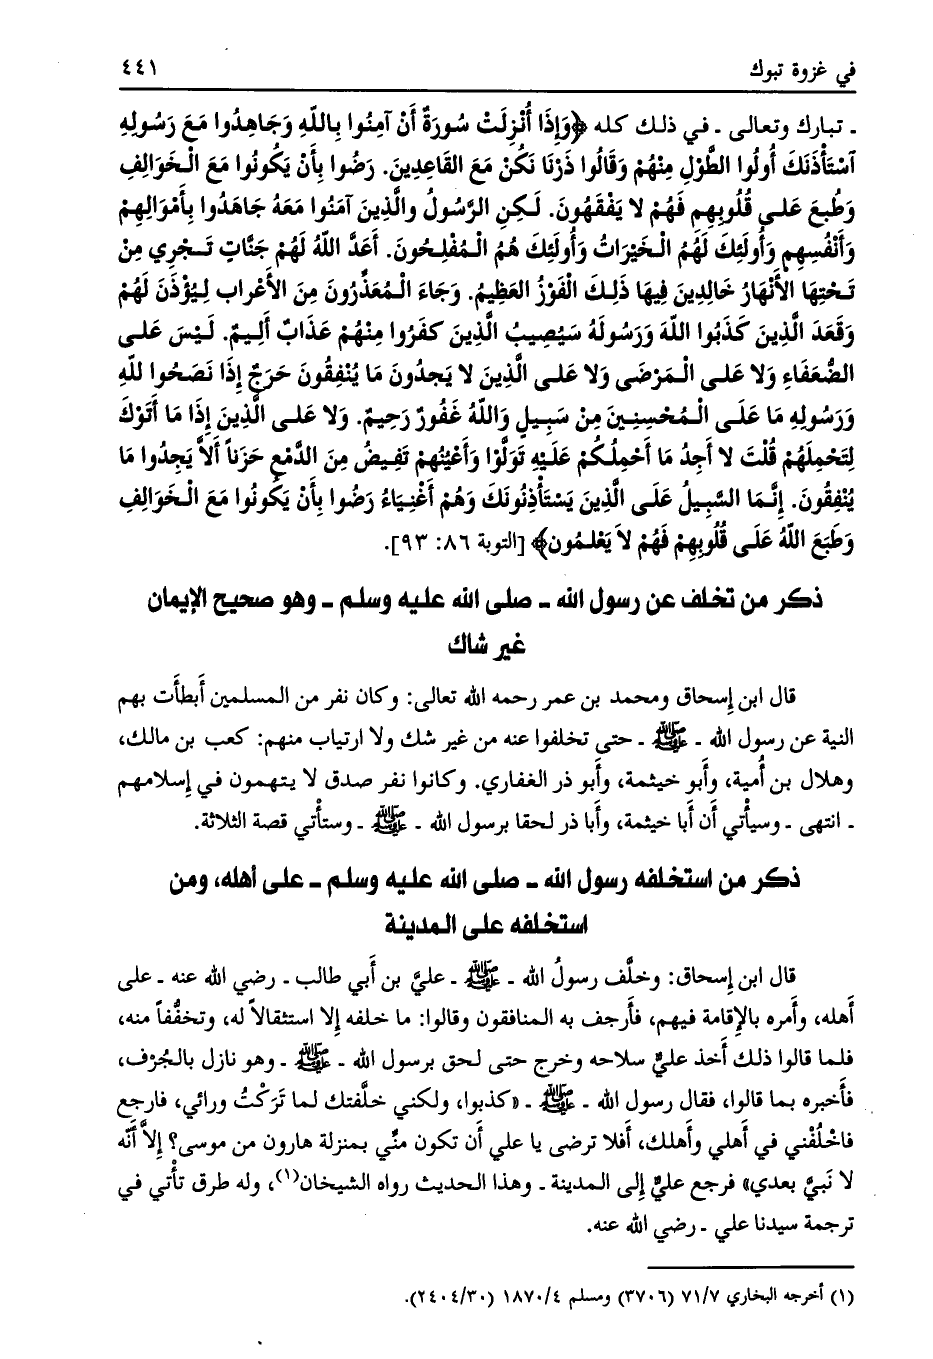 في غزوة تبوك ٤٤١
ـ تبارك وتعالى ـ في ذلك كله ﴿وَإِذَا أُنْزِلَتْ سُورَةٌ أَنْ آمِنُوا بِاللّهِ وَجَاهِدُوا مَعَ رَسُولِهِ
اَسْتَأْذَنَكَ أُولُوا الطَّوْلِ مِنْهُمْ وَقَالُوا ذَرْنَا نَكُنْ مَعَ القَاعِدِينَ. رَضُوا بِأَنْ يَكُونُوا مَعَ الْخَوَالِفِ
وَطُبِعَ عَلى قُلُوبِهِم فَهُمْ لا يَفْقَهُونَ. لَكِنِ الرَّسُولُ والَّذِينَ آمَنُوا مَعَهُ جَاهَدُوا بِأَمْوَالِهِمْ
وَأَنْفُسِهِم وَأُولَئِكَ لَهُمُ الْخَيْرَاتُ وَأُولَئِكَ هُمُ الْمُفْلِحُونَ. أَعَدَّ اللّهُ لَهُمْ جَنَّاتٍ تَجْرِي مِنْ
تَحْتِهَا الأَنْهَارُ خَالِدِينَ فِيهَا ذَلِكَ الْفَوْزُ العَظِيمُ. وَجَاءَ الْمُعَذِّرُونَ مِنَ الأَعْرابِ لِيُؤْذَنَ لَهُمْ
وَقَعَدَ الَّذِينَ كَذَبُوا اللّهَ وَرَسُولَهُ سَيُصِيبُ الَّذِينَ كفَرُوا مِنْهُمْ عَذَابٌ أَلِيمٌ. لَيْسَ عَلى
الضُّعَفَاءِ وَلا عَلى الْمَرْضَى وَلا عَلى الَّذِينَ لا يَجِدُونَ مَا يُنْفِقُونَ حَرَجٌ إِذَا نَصَحُوا للّهِ
وَرَسُولِهِ مَا عَلَى الْمُحْسِنِينَ مِنْ سَبِيلٍ وَاللّهُ غَفُورٌ رَحِيمٌ. وَلا عَلى الَّذِينَ إِذَا مَا أَتَوْكَ
لِتَحْمِلَهُمْ قُلْتَ لا أَجِدُ مَا أَحْمِلُكُمْ عَلَيْهِ تَوَلَّوْا وَأَعْيُنُهمْ تَفِيضُ مِنَ الدَّمْعِ حَزَناً أَلاَّ يَجِدُوا مَا
يُنْفِقُونَ. إِنَّمَا السَّبِيلُ عَلَى الَّذِينَ يَسْتَأْذِنُونَكَ وَهُمْ أَغْنِيَاءُ رَضُوا بِأَنْ يَكُونُوا مَعَ الْخَوَالِفِ
وَطَبَعَ اللّهُ عَلَى قُلُوبِهِمْ فَهُمْ لاَ يَعْلَمُون﴾ [التوبة ٨٦: ٩٣].
ذكر من تخلف عن رسول الله ـ صلى الله عليه وسلم ـ وهو صحيح الإيمان
غير شاك
قال ابن إسحاق ومحمد بن عمر رحمه الله تعالى: وكان نفر من المسلمين أَبطأَت بهم
النية عن رسول الله ـ ﷺ ـ حتى تخلفوا عنه من غير شك ولا ارتياب منهم: كعب بن مالك،
وهلال بن أُمية، وأبو خيثمة، وأبو ذر الغفاري. وكانوا نفر صدق لا يتهمون في إسلامهم
ـ انتهى ـ وسيأْتي أن أبا خيثمة، وأَبا ذر لحقا برسول الله ـ ﷺ ـ وستأْتي قصة الثلاثة.
ذكر من استخلفه رسول الله ـ صلى الله عليه وسلم ـ على أهله، ومن
استخلفه على المدينة
قال ابن إسحاق: وخلَّف رسولُ الله ـ ﷺ ـ عليَّ بن أَبي طالب ـ رضي الله عنه ـ على
أَهله، وأَمره بالإقامة فيهم، فأَرجف به المنافقون وقالوا: ما خلفه إلا استثقالاً له، وتخفُّفاً منه،
فلما قالوا ذلك أَخذ عليٌّ سلاحه وخرج حتى لحق برسول الله ـ ﷺ ـ وهو نازل بالجُرْف،
فأَخبره بما قالوا، فقال رسول الله ـ ﷺ ـ «كذبوا، ولكني خلَّفتك لما تَرَكْتُ ورائي، فارجع
فاخْلُفْني في أهلي وأَهلك، أَفلا ترضى يا علي أَن تكون منِّي بمنزلة هارون من موسى؟ إلاَّ أَنَّه
لا نَبيَّ بعدي» فرجع عليٌّ إلى المدينة ـ وهذا الحديث رواه الشيخان(١)، وله طرق تأْتي في
ترجمة سيدنا علي ـ رضي الله عنه.
(١) أخرجه البخاري ٧١/٧ (٣٧٠٦) ومسلم ١٨٧٠/٤ (٢٤٠٤/٣٠).